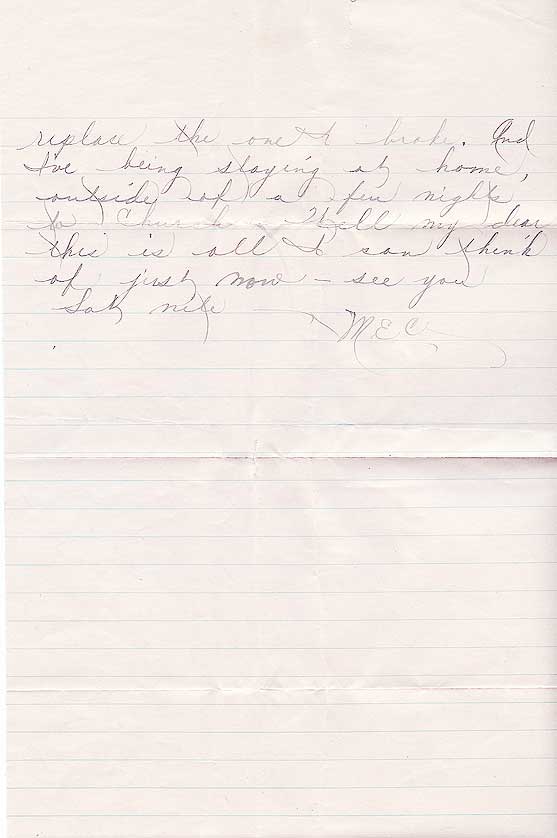 replace the one I broke. And
I've being staying at home,
outside of a few nights
to Church. Well my dear
this is all I can think
of just now - see you
Sat nite
M.E.C.